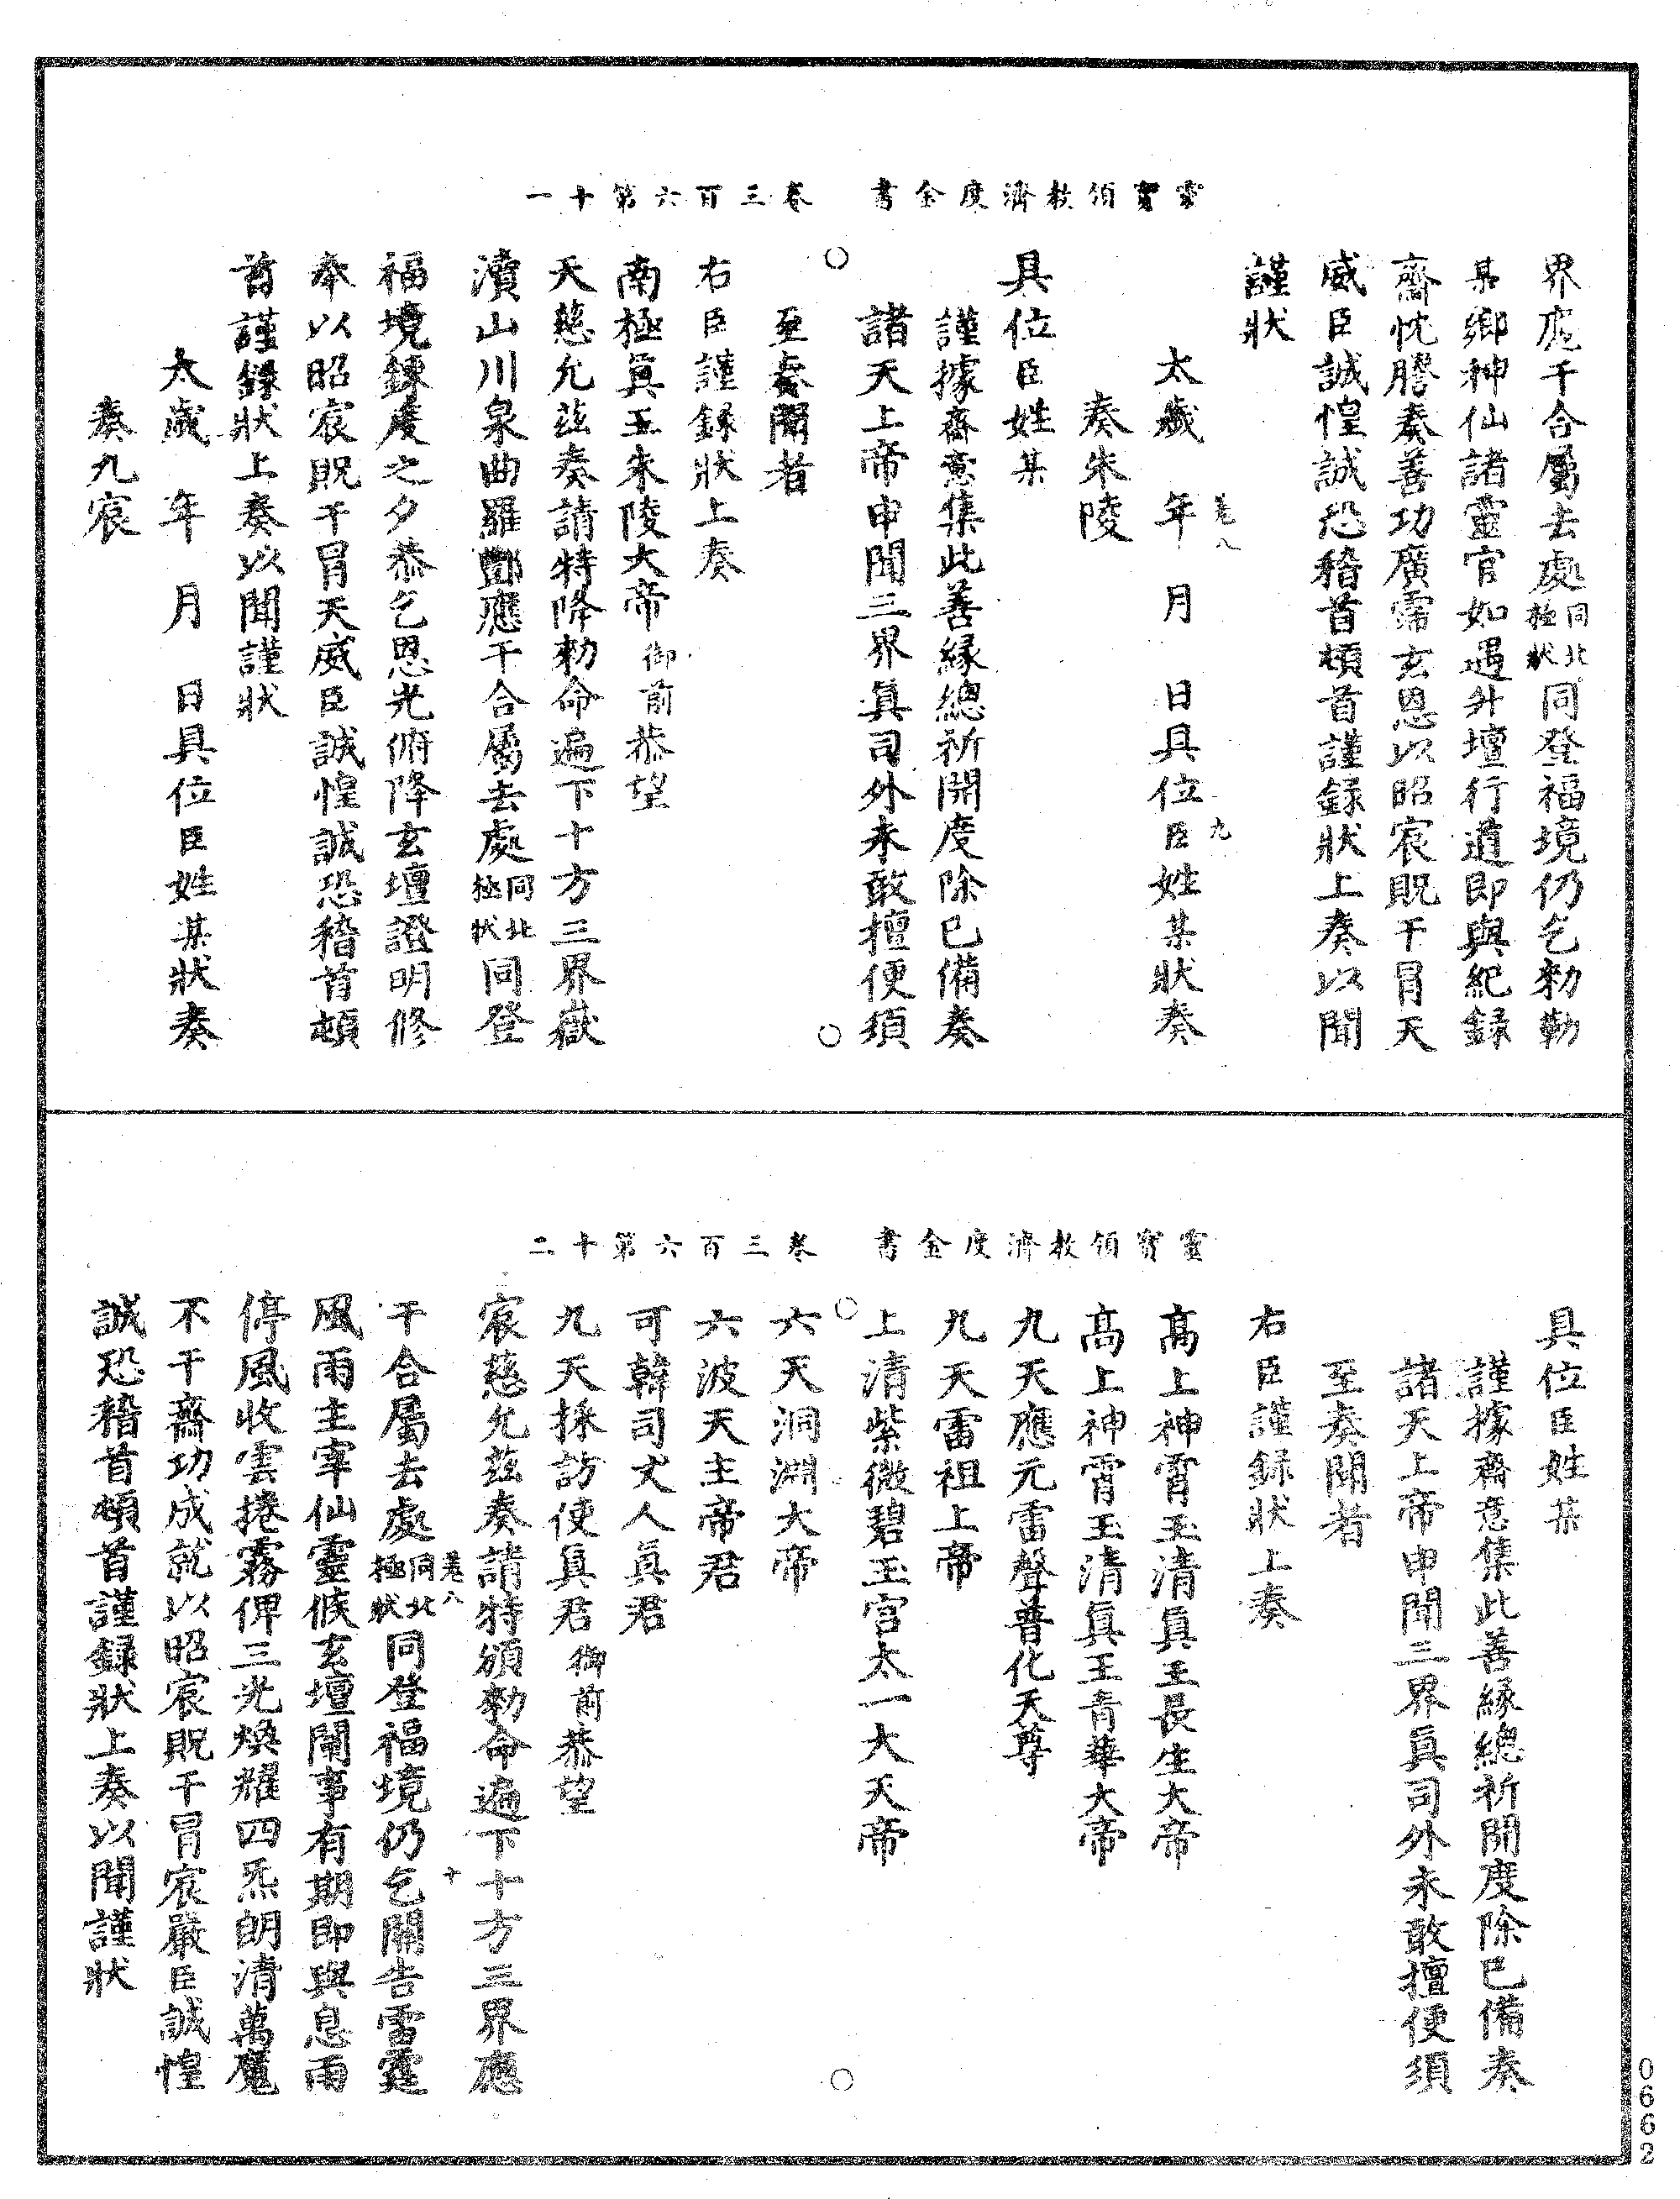 靈寶領教濟度金書　卷三百六第十一
界應干合屬去處同北極狀同登福境仍乞勑勒
某鄉神仙諸靈官如遇升壇行道即與紀錄
齋忱謄奏善功廣霈玄恩以昭宸貺干冒天
威臣誠惶誠恐稽首頓首謹錄狀上奏以聞
謹狀
太歲　年　月　日具位臣姓某狀奏
卷八　九
奏朱陵
具位臣姓某
謹據齋意集此善緣總祈開度除已備奏
諸天上帝申聞三界眞司外未敢擅便須
至奏聞者
右臣謹錄狀上奏
南極眞王朱陵大帝御前恭望
天慈允茲奏請特降勑命遍下十方三界嶽
瀆山川泉曲羅酆應干合屬去處同北極狀同登
福境鍊度之夕恭乞恩光俯降玄壇證明修
奉以昭宸貺干冒天威臣誠惶誠恐稽首頓
首謹錄狀上奏以聞謹狀
太歲　年　月　日具位臣姓某狀奏
奏九宸
靈寶領教濟度金書　卷三百六第十二
具位臣姓某
謹據齋意集此善緣總祈開度除已備奏
諸天上帝申聞三界眞司外未敢擅便須
至奏聞者
右臣謹錄狀上奏
高上神霄玉清眞王長生大帝
高上神霄玉清眞王青華大帝
九天應元雷聲普化天尊
九天雷祖上帝
上清紫微碧玉宮太一大天帝
六天洞淵大帝
六波天主帝君
可韓司丈人眞君
九天採訪使眞君御前恭望
宸慈允茲奏請特頒勑命遍下十方三界應
卷八　十
干合屬去處同北極狀同登福境仍乞開告雷霆
風雨主宰仙靈候玄壇開事有期即與息雨
停風收雲捲霧俾三光煥耀四炁朗清萬魔
不干齋功成就以昭宸貺干冒宸嚴臣誠惶
誠恐稽首頓首謹錄狀上奏以聞謹狀
0662